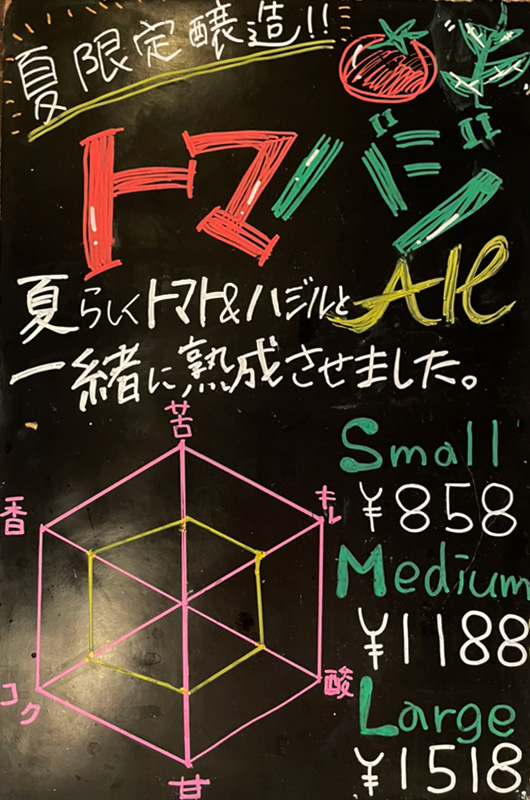 夏限定醸造!!
トマバジ
夏らしくトマト&バジルとAle
一緒に熟成させました。
苦
香
キレ
コク
酸
甘
Small
¥858
Medium
¥1188
Large
¥1518